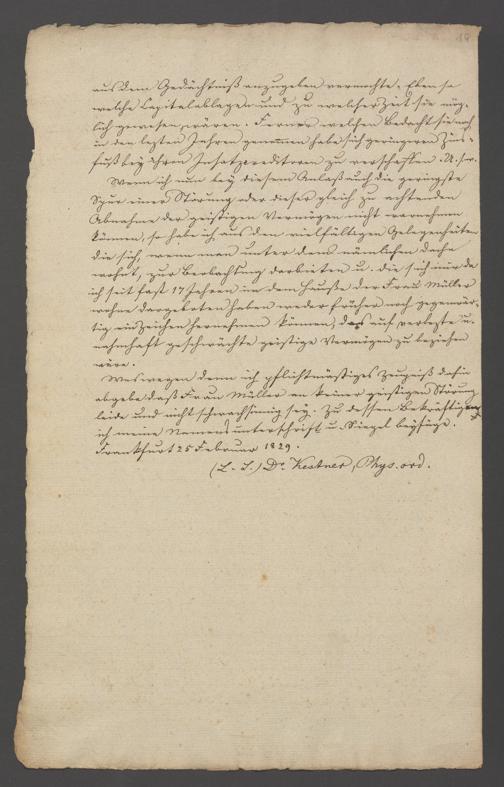 aus dem Gedächtniß anzugeben vermochte. Eben so
welche Capitalablagen und zu welcher Zeit sie mög-
lich gewesen wären. Ferner welchen Bedacht sie noch
in den lezten Jahren genommen habe sich geringeren Zins-
fuß bey ihren Insatzcreditoren zu verschaffen. U. s. w.
Wenn ich nun bey diesem Anlaß auch die geringste
Spur einer Störung oder dieser gleich zu achtenden
Abnahme der geistigen Vermögen nicht warnehmen
können, so habe ich aus den vielfältigen Gelegenheiten
die sich, wenn man unter dem nämlichen Dache
wohnt, zur Beobachtung darbieten u. die sich mir da
ich seit fast 17 Jahren in dem Hauße der Frau Müller
wohne dargeboten haben weder früher noch gegenwär-
tig ein Zeichen hernehmen können, das auf verlezte u.
nahmhaft geschwächte geistige Vermögen zu beziehen
wäre.
Weswegen denn ich pflichtmäsiges Zeugniß dahin
abgebe daß Frau Müller an keiner geistigen Störung
leide und nicht schwachsinnig sey. Zu dessen Bekräftigung
ich meine Namensunterschrift u. Siegel beyfüge.
Frankfurt 25 Februar 1829.
(L. S.) Dr. Kestner, Phys. ord.